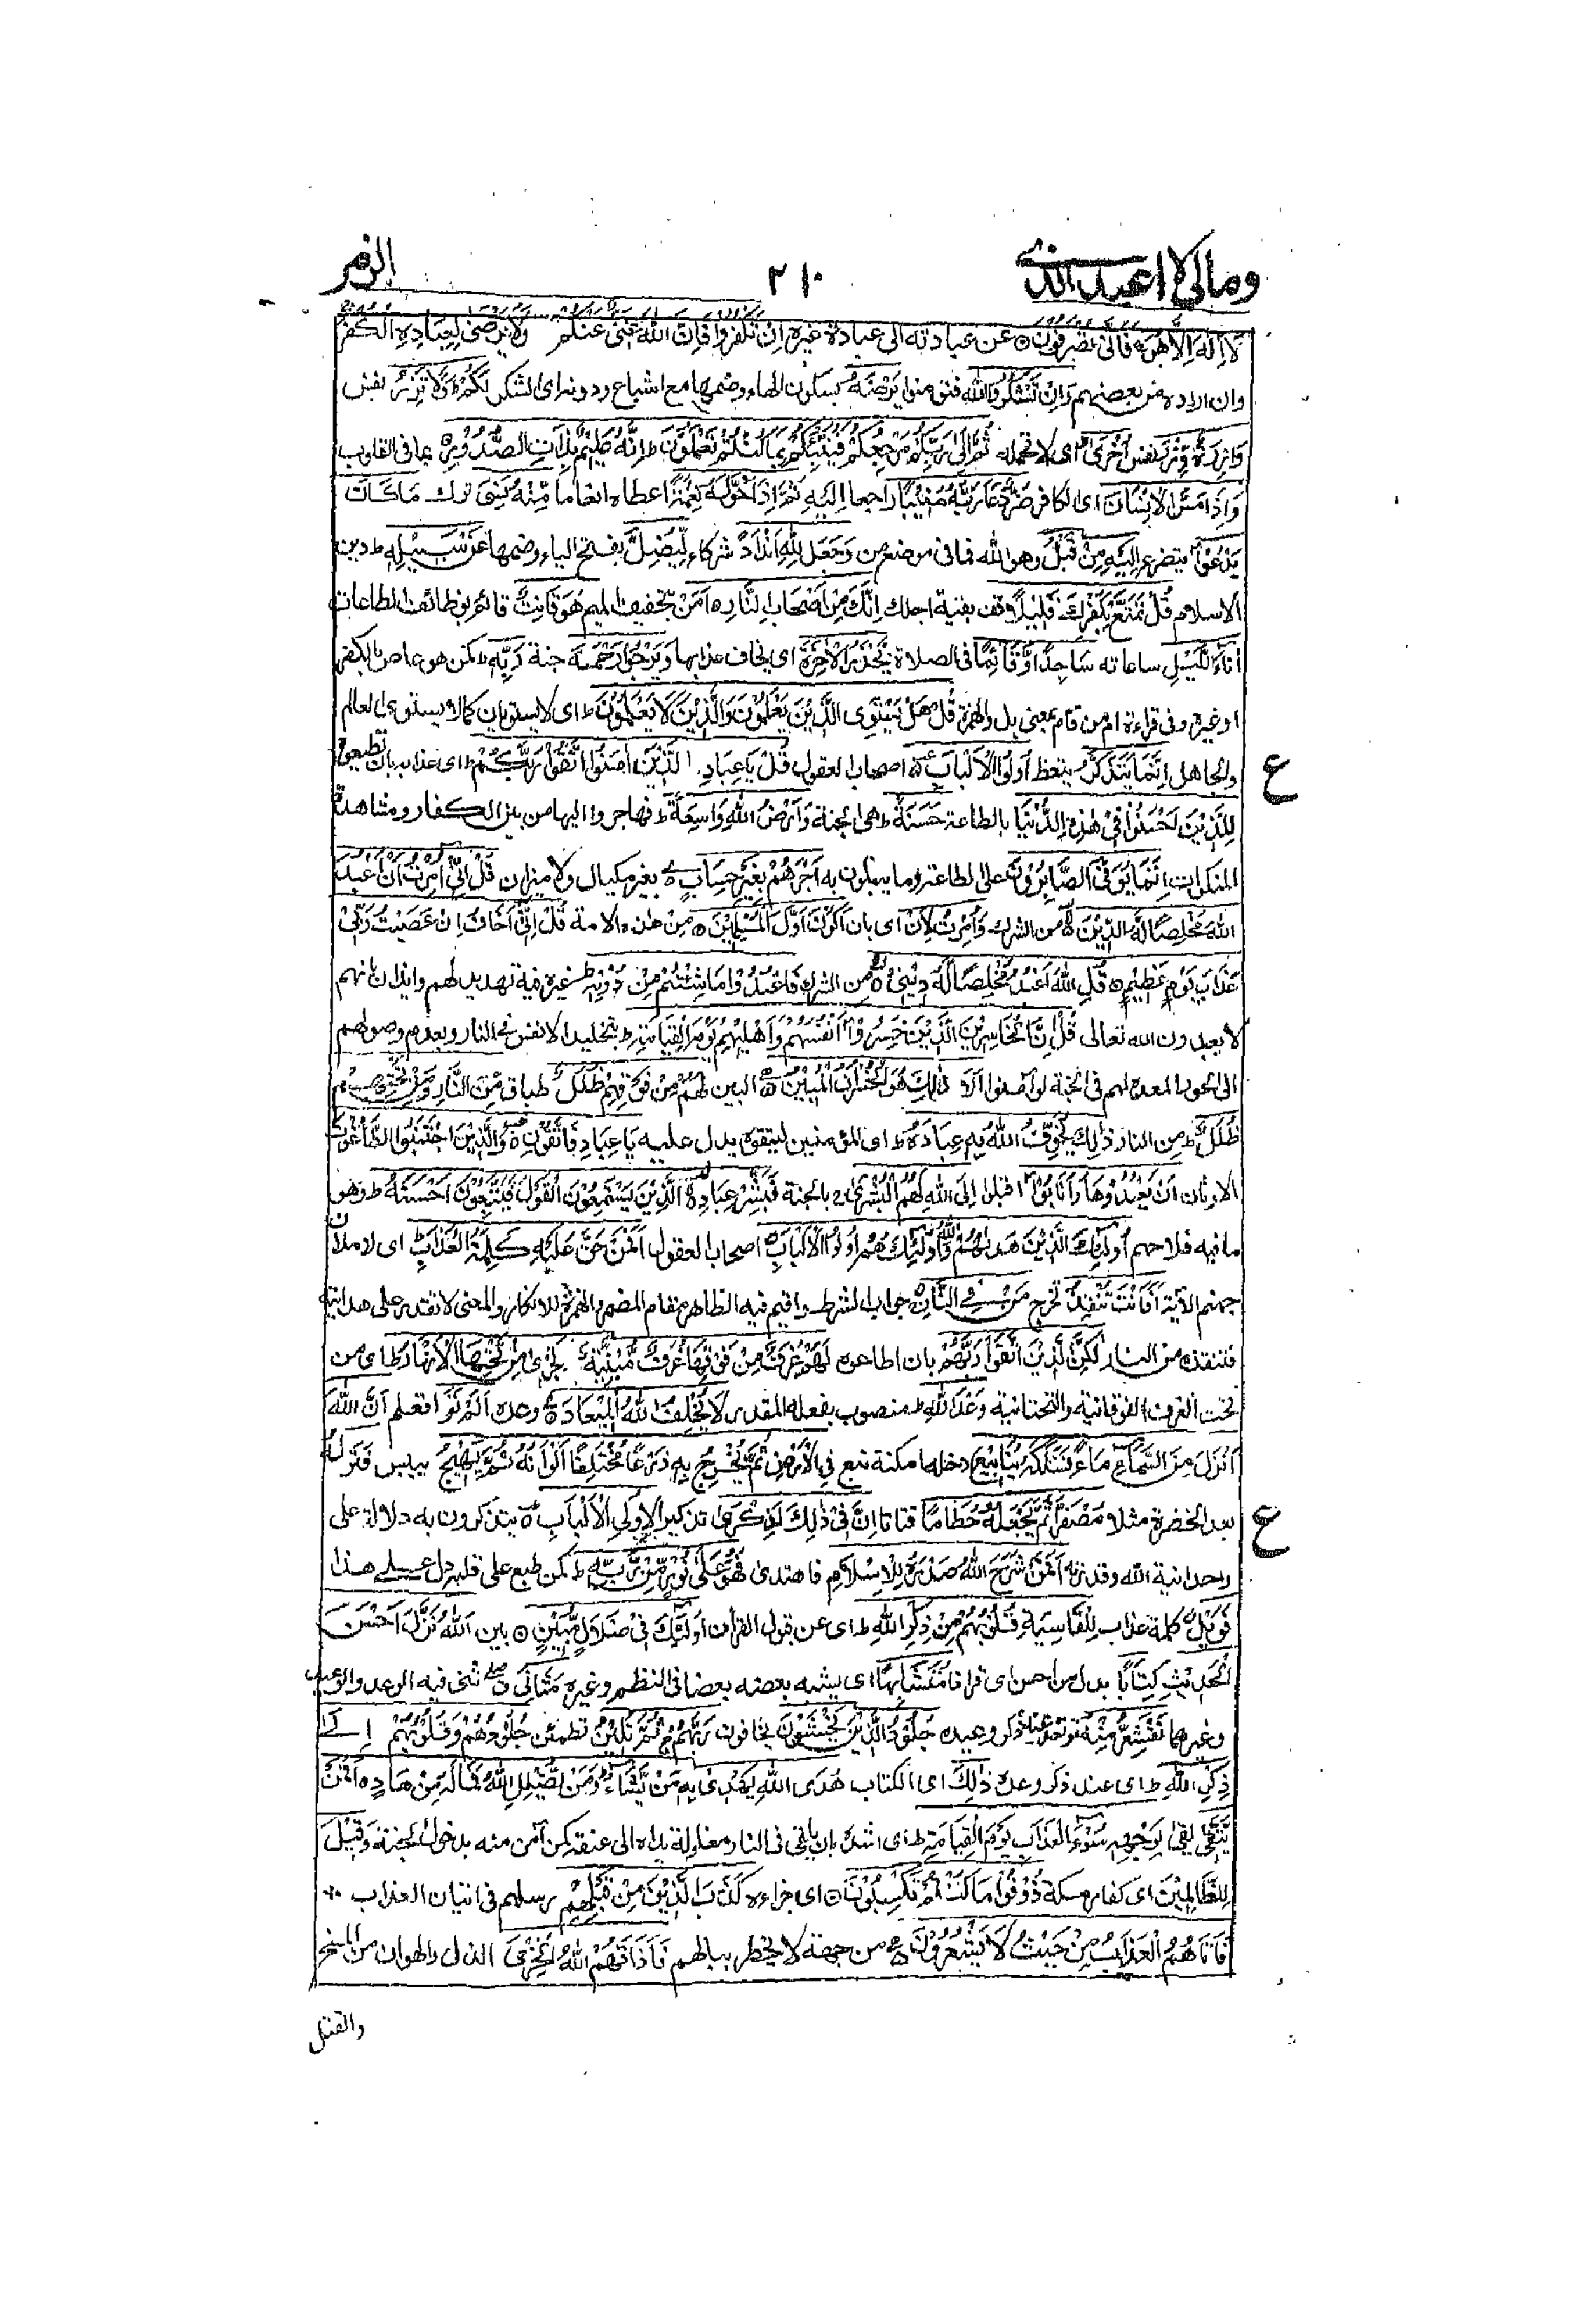 ومالى لا اعبد الذى
٢١٠
الزمر
لَا اِلٰهَ اِلَّا هُوَ فَاَنّٰى تُصْرَفُوْنَ عن عبادته الى عبادة غيره اِنْ تَكْفُرُوْا فَاِنَّ اللهَ غَنِىٌّ عَنْكُمْ وَلَا يَرْضٰى لِعِبَادِهِ الْكُفْرَ
وان اراده من بعضهم وَاِنْ تَشْكُرُوا الله فتؤمنوا يَرْضَهُ بسكون الهاء وضمها مع اشباع ودونه اى الشكر لَكُمْ ط وَلَا تَزِرُ نفس
وَازِرَةٌ وِّزْرَ نفس اُخْرٰى ط اى لا تحمله ثُمَّ اِلٰى رَبِّكُمْ مَّرْجِعُكُمْ فَيُنَبِّئُكُمْ بِمَا كُنْتُمْ تَعْمَلُوْنَ ط اِنَّهٗ عَلِيْمٌ بِذَاتِ الصُّدُوْرِ بما فى القلوب
وَاِذَا مَسَّ الْاِنْسَانَ اى الكافر ضُرٌّ دَعَا رَبَّهٗ مُنِيْبًا راجعا اِلَيْهِ ثُمَّ اِذَا خَوَّلَهٗ نِعْمَةً اعطاه انعاما مِّنْهُ نَسِىَ ترك مَا كَانَ
يَدْعُوْٓا يتضرع اِلَيْهِ مِنْ قَبْلُ وهو الله فما فى موضع من وَجَعَلَ لِلّٰهِ اَنْدَادًا شركاء لِّيُضِلَّ بفتح الياء وضمها عَنْ سَبِيْلِهٖ ط دين
الاسلام قُلْ تَمَتَّعْ بِكُفْرِكَ قَلِيْلًا وقت بقية اجلك اِنَّكَ مِنْ اَصْحَابِ النَّارِ اَمَنْ بتخفيف الميم هُوَ قَانِتٌ قائم بوظائف الطاعات
اٰنَآءَ الَّيْلِ ساعاته سَاجِدًا وَّقَآئِمًا فى الصلاة يَّحْذَرُ الْاٰخِرَةَ اى يخاف عذابها وَيَرْجُوْا رَحْمَةَ جنة رَبِّهٖ ط كمن هو عاص بالكفر
او غيره وفى قراءة ام من فام بمعنى بل والهمزة قُلْ هَلْ يَسْتَوِى الَّذِيْنَ يَعْلَمُوْنَ وَالَّذِيْنَ لَا يَعْلَمُوْنَ ط اى لا يستويان كما لا يستوى العالم
والجاهل اِنَّمَا يَتَذَكَّرُ يتعظ اُولُوا الْاَلْبَابِ اصحاب العقول قُلْ يَا عِبَادِ الَّذِيْنَ اٰمَنُوا اتَّقُوْا رَبَّكُمْ ط اى عذابه بان تطيعوه
ع
لِلَّذِيْنَ اَحْسَنُوْا فِىْ هٰذِهِ الدُّنْيَا بالطاعة حَسَنَةٌ ط هى الجنة وَاَرْضُ اللهِ وَاسِعَةٌ ط فهاجروا اليها من بين الكفار ومشاهدة
المنكرات اِنَّمَا يُوَفَّى الصَّابِرُوْنَ على الطاعة وما يبتلون به اَجْرَهُمْ بِغَيْرِ حِسَابٍ بغير مكيال ولا ميزان قُلْ اِنِّىْ اُمِرْتُ اَنْ اَعْبُدَ
اللهَ مُخْلِصًا لَّهُ الدِّيْنَ من الشرك وَاُمِرْتُ لِاَنْ اى بان اَكُوْنَ اَوَّلَ الْمُسْلِمِيْنَ من هذه الامة قُلْ اِنِّىْ اَخَافُ اِنْ عَصَيْتُ رَبِّىْ
عَذَابَ يَوْمٍ عَظِيْمٍ قُلِ اللهَ اَعْبُدُ مُخْلِصًا لَّهٗ دِيْنِىْ من الشرك فَاعْبُدُوْا مَا شِئْتُمْ مِّنْ دُوْنِهٖ ط غيره فيه تهديد لهم وايذان بانهم
لا يعبدون الله تعالى قُلْ اِنَّ الْخَاسِرِيْنَ الَّذِيْنَ خَسِرُوْٓا اَنْفُسَهُمْ وَاَهْلِيْهِمْ يَوْمَ الْقِيَامَةِ ط بتخليد الانفس فى النار وبعدم وصولهم
الى الحور المعدة لهم فى الجنة لو اٰمنوا اَلَا ذٰلِكَ هُوَ الْخُسْرَانُ الْمُبِيْنُ البين لَهُمْ مِّنْ فَوْقِهِمْ ظُلَلٌ طباق مِّنَ النَّارِ وَمِنْ تَحْتِهِمْ
ظُلَلٌ ط من النار ذٰلِكَ يُخَوِّفُ اللهُ بِهٖ عِبَادَهٗ ط اى المؤمنين ليتقوه يدل عليه يَا عِبَادِ فَاتَّقُوْنِ وَالَّذِيْنَ اجْتَنَبُوا الطَّاغُوْتَ
الاوثان اَنْ يَّعْبُدُوْهَا وَاَنَابُوْٓا اقبلوا اِلَى اللهِ لَهُمُ الْبُشْرٰى بالجنة فَبَشِّرْ عِبَادِ الَّذِيْنَ يَسْتَمِعُوْنَ الْقَوْلَ فَيَتَّبِعُوْنَ اَحْسَنَهٗ ط وهو
ما فيه فلاحهم اُولٰئِكَ الَّذِيْنَ هَدٰىهُمُ اللهُ وَاُولٰئِكَ هُمْ اُولُوا الْاَلْبَابِ اصحاب العقول اَفَمَنْ حَقَّ عَلَيْهِ كَلِمَةُ الْعَذَابِ ط اى لاملان
جهنم الاية اَفَاَنْتَ تُنْقِذُ تخرج مَنْ فِى النَّارِ جواب الشرط واقيم فيه الظاهر مقام المضمر والهمزة للانكار والمعنى لا تقدر على هدايته
فتنقذه من النار لٰكِنِ الَّذِيْنَ اتَّقَوْا رَبَّهُمْ بان اطاعوه لَهُمْ غُرَفٌ مِّنْ فَوْقِهَا غُرَفٌ مَّبْنِيَّةٌ تَجْرِىْ مِنْ تَحْتِهَا الْاَنْهَارُ ط اى من
تحت الغرف الفوقانية والتحتانية وَعْدَ اللهِ ط منصوب بفعله المقدر لَا يُخْلِفُ اللهُ الْمِيْعَادَ وعده اَلَمْ تَرَ تعلم اَنَّ اللهَ
اَنْزَلَ مِنَ السَّمَآءِ مَآءً فَسَلَكَهٗ يَنَابِيْعَ ادخله امكنة نبع فِى الْاَرْضِ ثُمَّ يُخْرِجُ بِهٖ زَرْعًا مُّخْتَلِفًا اَلْوَانُهٗ ثُمَّ يَهِيْجُ ييبس فَتَرٰىهُ
بعد الخضرة مثلا مُصْفَرًّا ثُمَّ يَجْعَلُهٗ حُطَامًا فتاتا اِنَّ فِىْ ذٰلِكَ لَذِكْرٰى تذكيرا لِاُولِى الْاَلْبَابِ يتذكرون به دلالة على
ع
وحدانية الله وقدرته اَفَمَنْ شَرَحَ اللهُ صَدْرَهٗ لِلْاِسْلَامِ فاهتدى فَهُوَ عَلٰى نُوْرٍ مِّنْ رَّبِّهٖ ط كمن طبع على قلبه دل على هذا
فَوَيْلٌ كلمة عذاب لِّلْقَاسِيَةِ قُلُوْبُهُمْ مِّنْ ذِكْرِ اللهِ ط اى عن قبول القرآن اُولٰئِكَ فِىْ ضَلَالٍ مُّبِيْنٍ بين اَللهُ نَزَّلَ اَحْسَنَ
الْحَدِيْثِ كِتَابًا بدل من احسن اى قرآنا مُّتَشَابِهًا اى يشبه بعضه بعضا فى النظم وغيره مَّثَانِىَ ثنى فيه الوعد والوعيد
وغيرهما تَقْشَعِرُّ مِنْهُ ترتعد عند ذكر وعيده جُلُوْدُ الَّذِيْنَ يَخْشَوْنَ يخافون رَبَّهُمْ ثُمَّ تَلِيْنُ تطمئن جُلُوْدُهُمْ وَقُلُوْبُهُمْ اِلٰى
ذِكْرِ اللهِ ط اى عند ذكر وعده ذٰلِكَ اى الكتاب هُدَى اللهِ يَهْدِىْ بِهٖ مَنْ يَّشَآءُ ط وَمَنْ يُّضْلِلِ اللهُ فَمَا لَهٗ مِنْ هَادٍ اَفَمَنْ
يَّتَّقِىْ يلقى بِوَجْهِهٖ سُوْٓءَ الْعَذَابِ يَوْمَ الْقِيَامَةِ ط اى اشده بان يلقى فى النار مغلولة يداه الى عنقه كمن آمن منه بدخول الجنة وَقِيْلَ
لِلظَّالِمِيْنَ اى كفار مكة ذُوْقُوْا مَا كُنْتُمْ تَكْسِبُوْنَ اى جزاءه كَذَّبَ الَّذِيْنَ مِنْ قَبْلِهِمْ رسلهم فى اتيان العذاب
فَاَتَاهُمُ الْعَذَابُ مِنْ حَيْثُ لَا يَشْعُرُوْنَ من جهة لا يخطر ببالهم فَاَذَاقَهُمُ اللهُ الْخِزْىَ الذل والهوان من المسخ
والقتل